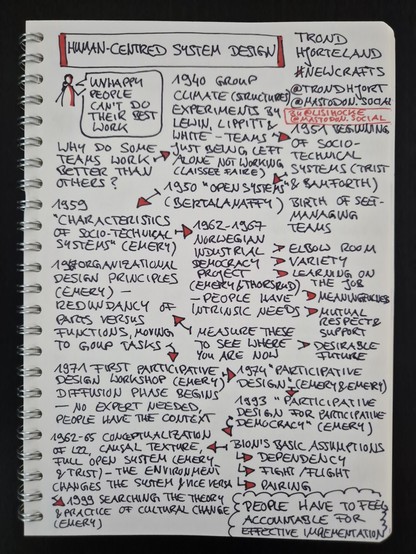 HUMAN-CENTRED SYSTEM DESIGN
TROND
HJORTELAND
#NEWCRAFTS
@TRONDHJORT
@MASTODON.SOCIAL
BY @LISIHOCKE
@MASTODON.SOCIAL
UNHAPPY
PEOPLE
CAN'T DO
THEIR BEST
WORK
1940 GROUP
CLIMATE (STRUCTURE)
EXPERIMENTS BY
LEWIN, LIPPITT &
WHITE - TEAMS
JUST BEING LEFT
ALONE NOT WORKING
(LAISSEZ FAIRE)
WHY DO SOME
TEAMS WORK
BETTER THAN
OTHERS?
1951 BEGINNING
OF SOCIO-
TECHNICAL
SYSTEMS (TRIST
& BAMFORTH)
BIRTH OF SELF-
MANAGING
TEAMS
1950 "OPEN SYSTEMS"
(BERTALANFFY)
1959
"CHARACTERISTICS
OF SOCIO-TECHNICAL
SYSTEMS" (EMERY)
1962-1967
NORWEGIAN
INDUSTRIAL
DEMOCRACY
PROJECT
(EMERY & THORSRUD)
- PEOPLE HAVE
INTRINSIC NEEDS
ELBOW ROOM
VARIETY
LEARNING ON
THE JOB
MEANINGFULNESS
MUTUAL
RESPECT &
SUPPORT
DESIRABLE
FUTURE
ORGANIZATIONAL
DESIGN PRINCIPLES
(EMERY) -
REDUNDANCY OF
PARTS VERSUS
FUNCTIONS, MOVING
TO GROUP TASKS
MEASURE THESE
TO SEE WHERE
YOU ARE NOW
1971 FIRST PARTICIPATIVE
DESIGN WORKSHOP (EMERY)
DIFFUSION PHASE BEGINS
- NO EXPERT NEEDED,
PEOPLE HAVE THE CONTEXT
1974 "PARTICIPATIVE
DESIGN" (EMERY & EMERY)
1993 "PARTICIPATIVE
DESIGN FOR PARTICIPATIVE
DEMOCRACY" (EMERY)
1962-65 CONCEPTUALIZATION
OF L22, CAUSAL TEXTURE,
FULL OPEN SYSTEM (EMERY
& TRIST) - THE ENVIRONMENT
CHANGES THE SYSTEM & VICE VERSA
BION'S BASIC ASSUMPTIONS
DEPENDENCY
FIGHT/FLIGHT
PAIRING
1999 SEARCHING THE THEORY
& PRACTICE OF CULTURAL CHANGE
(EMERY)
PEOPLE HAVE TO FEEL
ACCOUNTABLE FOR
EFFECTIVE IMPLEMENTATION